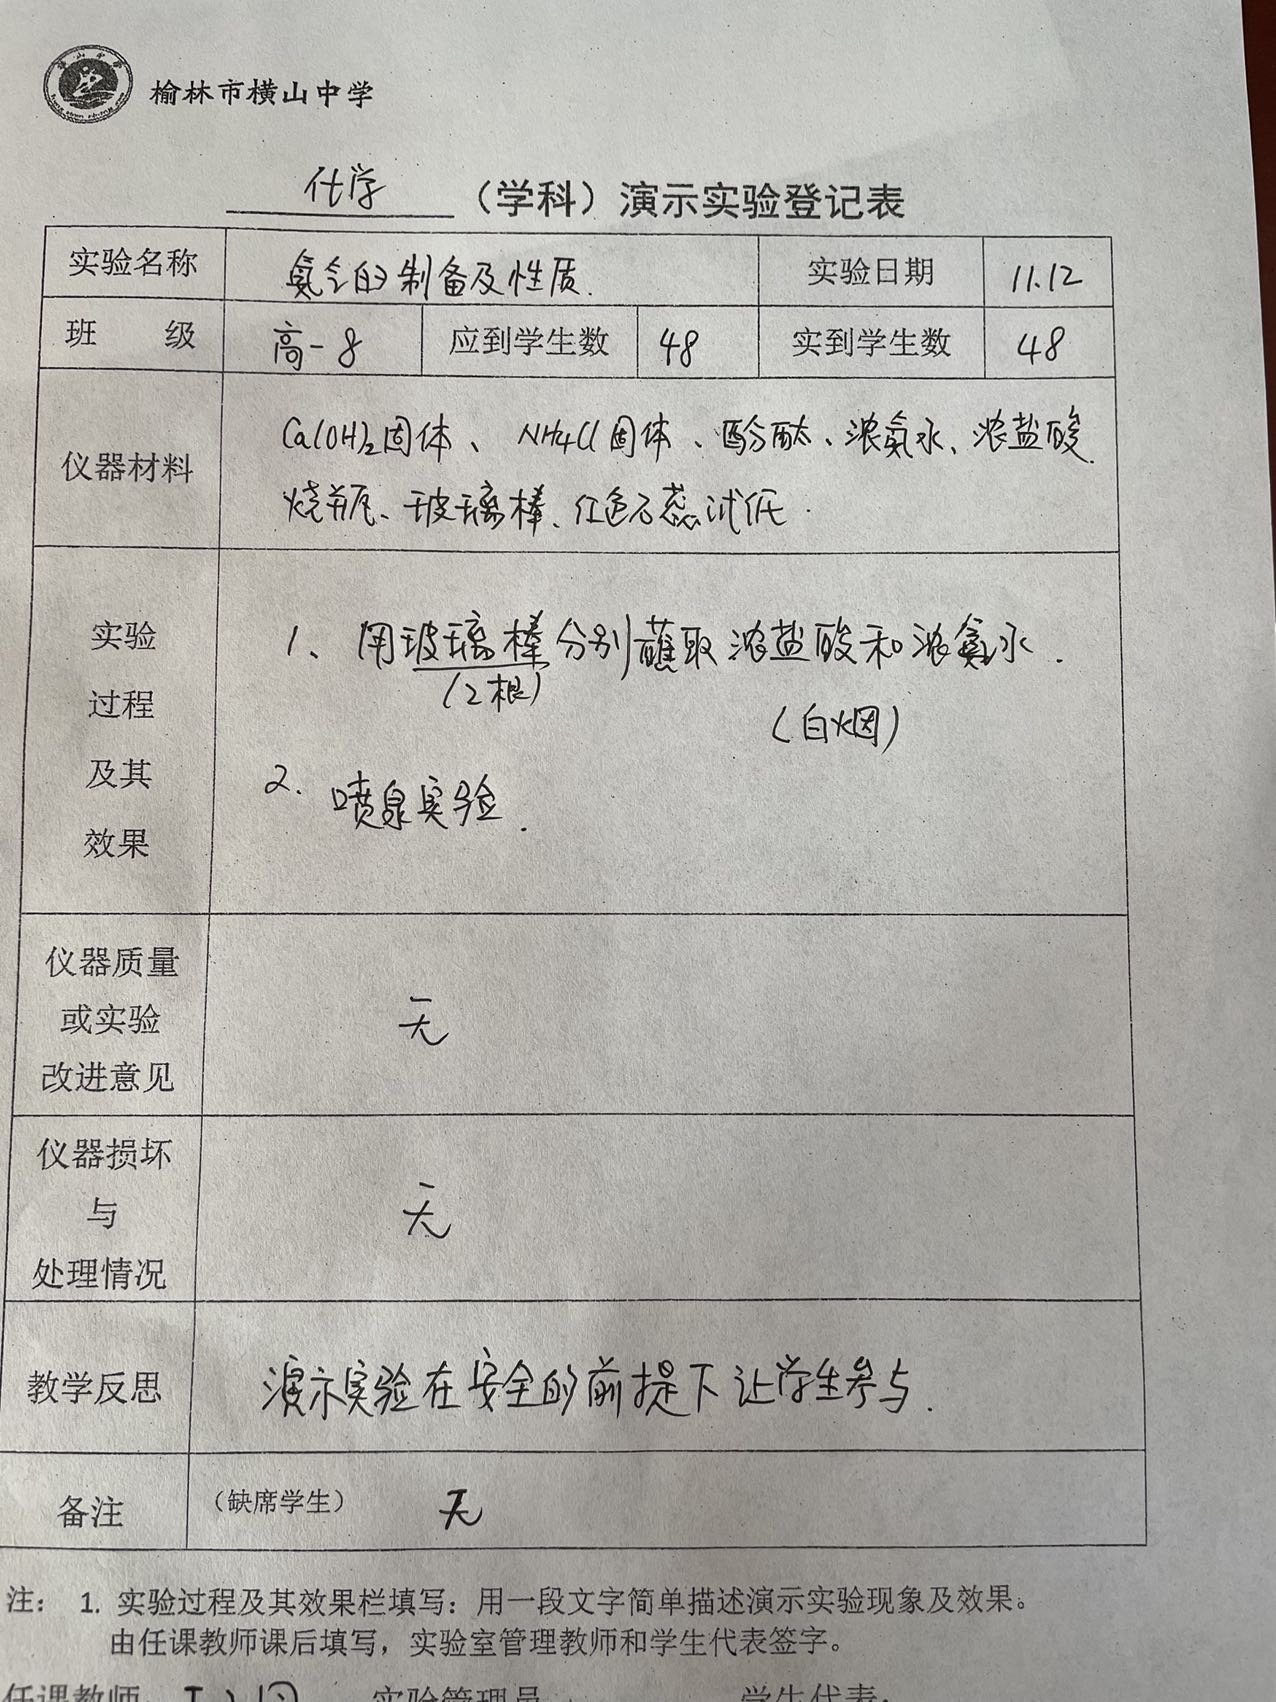 榆林市横山中学
化学 （学科）演示实验登记表
实验名称 氨气的制备及性质. 实验日期 11.12
班 级 高一8 应到学生数 48 实到学生数 48
仪器材料
Ca(OH)₂固体、NH₄Cl固体、酚酞、浓氨水、浓盐酸.
烧瓶、玻璃棒、红色石蕊试纸.
实验
过程
及其
效果
1、用玻璃棒分别蘸取浓盐酸和浓氨水.
(2根)
(白烟)
2. 喷泉实验.
仪器质量
或实验
改进意见
无
仪器损坏
与
处理情况
无
教学反思 演示实验在安全的前提下让学生参与.
备注 （缺席学生） 无
注： 1. 实验过程及其效果栏填写：用一段文字简单描述演示实验现象及效果。
由任课教师课后填写，实验室管理教师和学生代表签字。
任课教师 实验管理员 学生代表：